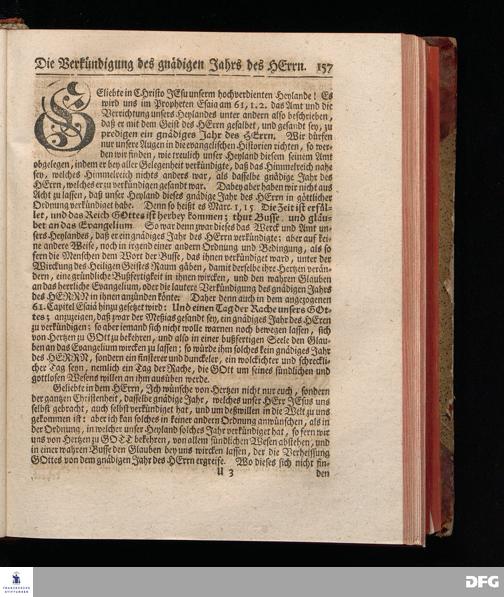 Die Verkündigung des gnädigen Jahrs des HErrn. 157
GEliebte in Christo JEsu unserm hochverdienten Heylande! Es
wird uns im Propheten Esaia am 61, 1. 2. das Amt und die
Verrichtung unsers Heylandes unter andern also beschrieben,
daß er mit dem Geist des HErrn gesalbet, und gesandt sey, zu
predigen ein gnädiges Jahr des HErrn. Wir dürfen
nur unsere Augen in die evangelischen Historien richten, so wer-
den wir finden, wie treulich unser Heyland diesem seinem Amt
obgelegen, indem er bey aller Gelegenheit verkündigte, daß das Himmelreich nahe
sey, welches Himmelreich nichts anders war, als dasselbe gnädige Jahr des
HErrn, welches er zu verkündigen gesandt war. Dabey aber haben wir nicht aus
der Acht zu lassen, daß unser Heyland dieses gnädige Jahr des HErrn in göttlicher
Ordnung verkündiget habe. Denn so heißt es Marc. 1, 15 Die Zeit ist erfül-
let, und das Reich GOttes ist herbey kommen; thut Busse und gläu-
bet an das Evangelium. So war denn zwar dieses das Werck und Amt un-
sers Heylandes, daß er ein gnädiges Jahr des HErrn verkündigte; aber auf kei-
ne andere Weise, noch in irgend einer andern Ordnung und Bedingung, als so
fern die Menschen dem Wort der Busse, das ihnen verkündiget ward, unter der
Wirckung des Heiligen Geistes Raum gäben, damit derselbe ihre Hertzen verän-
dern, eine gründliche Bußfertigkeit in ihnen wircken, und den wahren Glauben
an das herrliche Evangelium, oder die lautere Verkündigung des gnädigen Jahrs
des HERRN in ihnen anzünden könte. Daher denn auch in dem angezogenen
61. Capitel Esaiä hinzu gesetzt wird: Und einen Tag der Rache unsers GOt-
tes; anzuzeigen, daß zwar der Meßias gesandt sey, ein gnädiges Jahr des HErrn
zu verkündigen; so aber iemand sich nicht wolle warnen noch bewegen lassen, sich
von Hertzen zu GOtt zu bekehren, und also in einer bußfertigen Seele den Glau-
ben an das Evangelium wircken zu lassen; so würde ihm solches kein gnädiges Jahr
des HERRN, sondern ein finsterer und dunckeler, ein wolckichter und schreckli-
cher Tag seyn, nemlich ein Tag der Rache, die GOtt um seines sündlichen und
gottlosen Wesens willen an ihm ausüben werde.
Geliebte in dem HErrn, Ich wünsche von Hertzen nicht nur euch, sondern
der gantzen Christenheit, dasselbe gnädige Jahr, welches unser HErr JEsus uns
selbst gebracht, auch selbst verkündiget hat, und um deßwillen in die Welt zu uns
gekommen ist: aber ich kan solches in keiner andern Ordnung anwünschen, als in
der Ordnung, in welcher unser Heyland solches Jahr verkündiget hat, so fern wir
uns von Hertzen zu GOTT bekehren, von allem sündlichen Wesen abstehen, und
in einer wahren Busse den Glauben bey uns wircken lassen, der die Verheissung
GOttes von dem gnädigen Jahr des HErrn ergreife. Wo dieses sich nicht fin-
U 3 den
FRANCKESCHE STIFTUNGEN
DFG